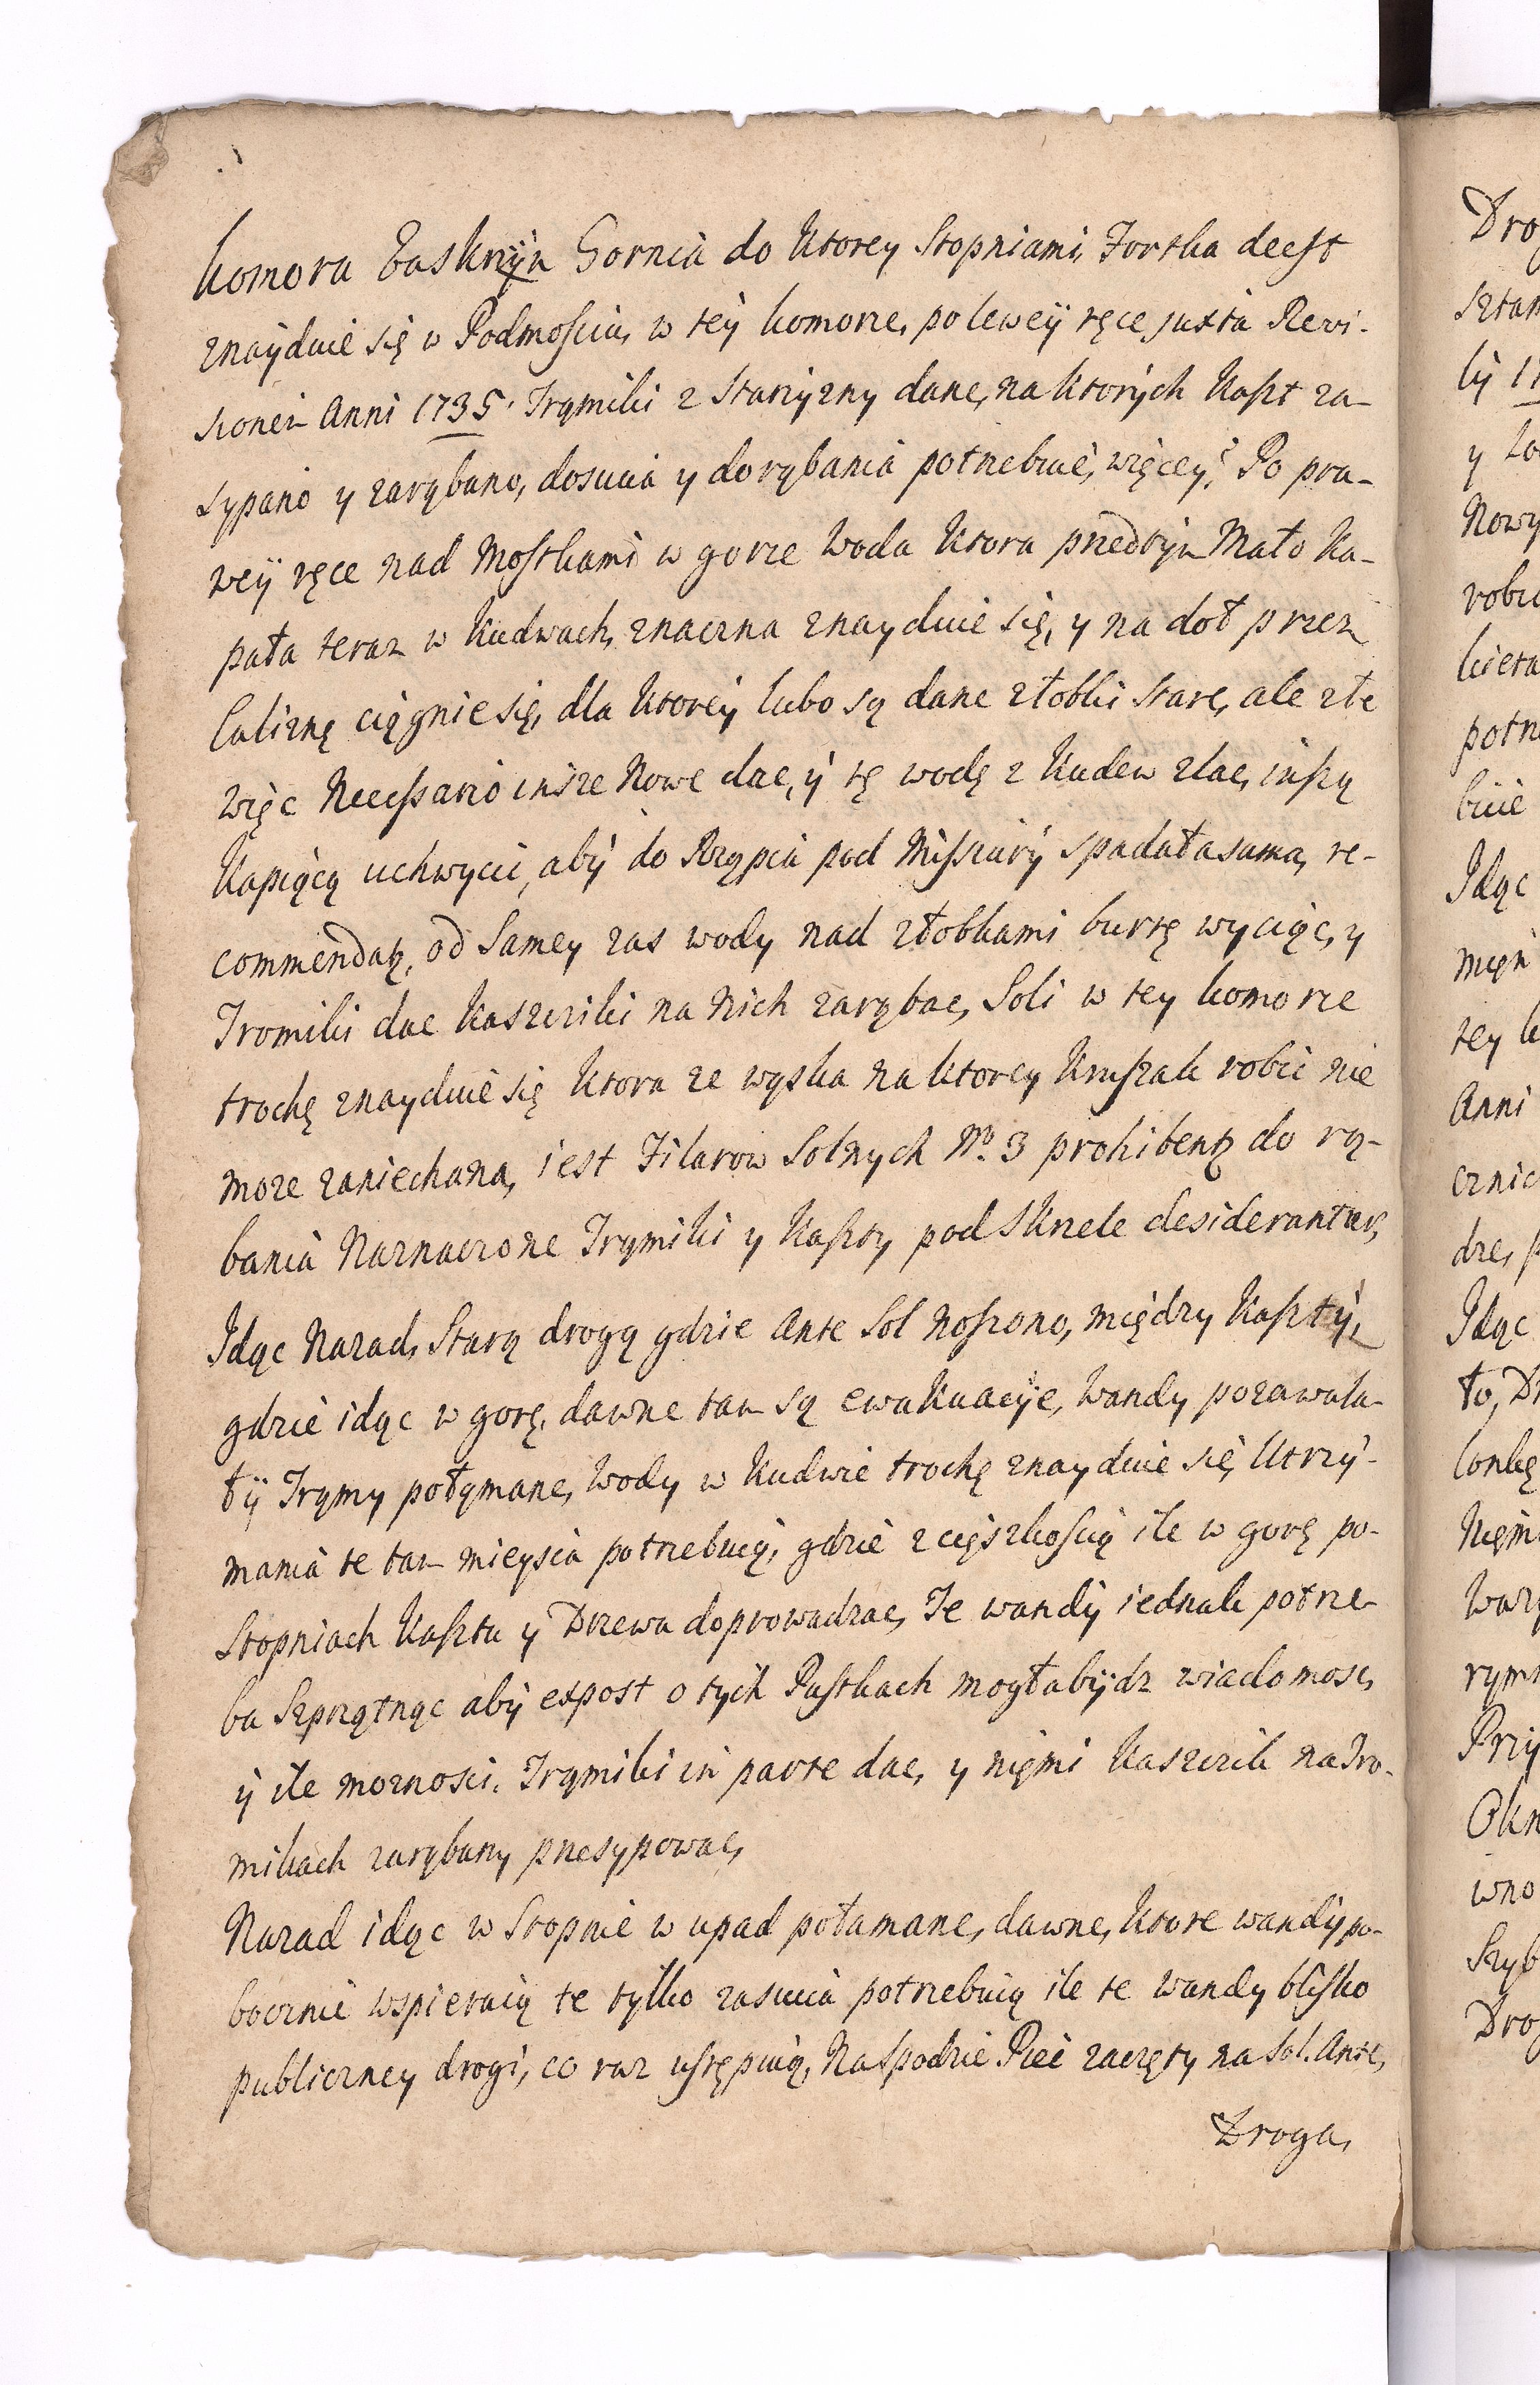 Komora Baskryn Gornia do Ktorey Stopniami, Fortka deest
znayduie się w Podmosciu, w tey komorze, po lewey ręce juxta Revi-
sionem Anni 1735. Trąmiki z Starzyzny dane, na ktorych Kaszt za-
sypano y zarąbano, dosucia y dorąbania potrzebuie, więcey, Po pra-
wey ręce nad Mostkami w gorze Woda Ktora przedtym Mało Ka-
pała teraz w Kudwach, znaczna znayduie się, y na doł przez
Caliznę ciągnie się, dla Ktorey lubo są dane złobki stare, ale złe
więc Necessario insze Nowe dac, y tę wodę z Kudew zlac, inszą
Kapiącą uchwycic, aby do Rząpia pod Misziury spadała sama, re-
commendatz, od Samey zas wody nad złobkami burtę wyciąc, y
Tromiki dac Kaszciki na Nich zarąbac, Soli w tey komorze
trochę znayduie się Ktora ze wąska na ktorey Kruszak robic nie
moze zaniechana, iest Filarow Solnych No. 3 prohibentz do rą-
bania Naznaczone Trąmiki y Kaszty pod Skrzele desiderantur,
Idąc Nazad, Starą drogą gdzie Ante Sol Noszono, między Kaszty,
gdzie idąc w gorę, dawne tam są ewakuacye, Wandy pozawala-
ły Trąmy połamane, Wody w Kudwie trochę znayduie się, Utrzy-
mania te tam mieysca potrzebuią, gdzie z cięszkoscią ile w gorę po-
Stopniach Kaszta y Drzewa doprowadzac, Te wandy iednak potrze-
ba Szprzątnąc aby expost o tych Pustkach mogła bydz wiadomosc,
y ile moznosci, Trąmiki in parte dac, y niemi Kaszcik na Tro-
mikach zarąbany przesypowac,
Nazad idąc w Stopnie w upad połamane, dawne, Ktore wandy po-
bocznie wspieraią te tylko zasucia potrzebuią ile te wandy blisko
publiczney drogi, co raz ustępuią, Na spodzie Piec zaczęty na Sol. Ante,
Droga,
Dro
lij 11
y
Nowy
potrz
Idąc
tey k
Anni
Idąc
Przy
Szyb
Drog